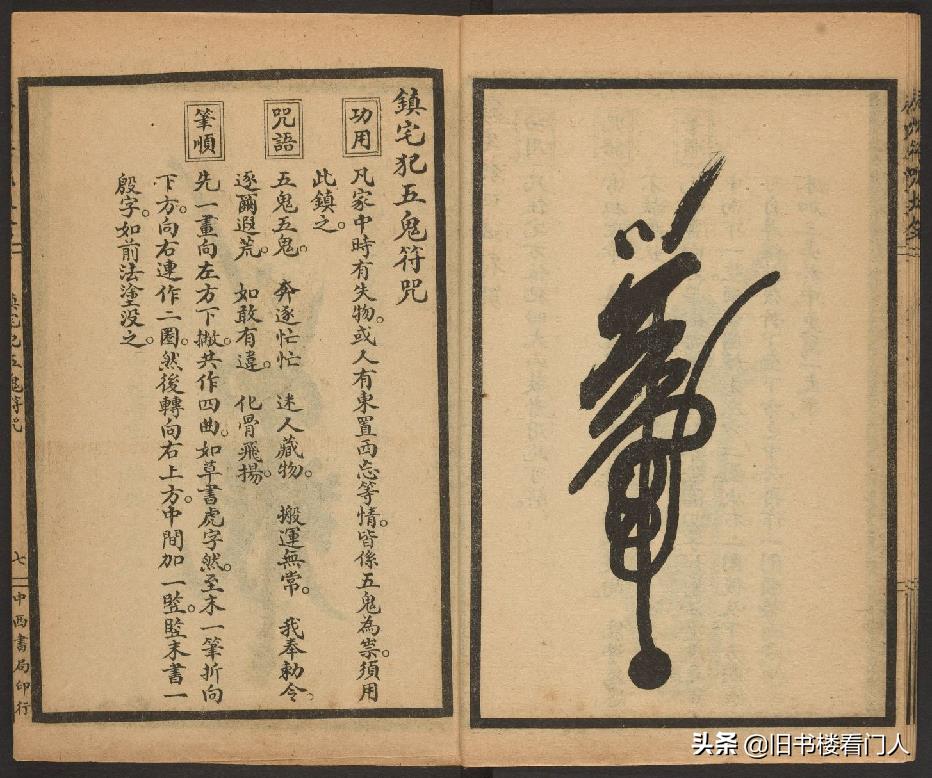 鎮宅犯五鬼符咒
功用
凡家中時有失物。或人有東置西忘等情。皆係五鬼為祟。須用
此鎮之。
咒語
五鬼五鬼。奔逐忙忙 迷人藏物。搬運無常。我奉勅令。
逐爾遐荒。如敢有違。化骨飛揚。
筆順
先一畫向左方下撇。共作四曲。如草書虎字然。至末一筆折向
下方。向右連作二圈。然後轉向右上方。中間加一竖。竖末書一
殷字。如前法塗没之。
鎮宅犯五鬼符咒
七
中西書局印行
头条 @旧书楼看门人